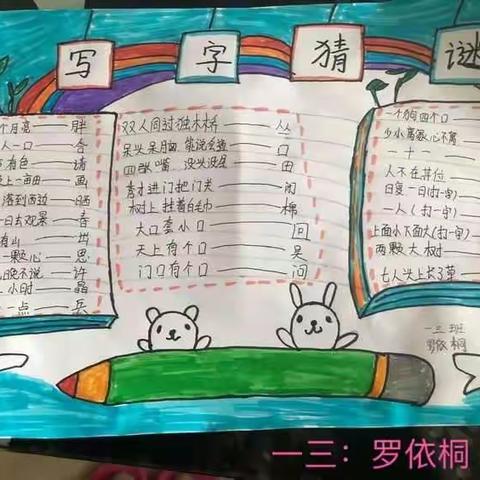 写 字 猜 谜
个月亮——胖
人一口——合
有色——
上一亩田——画
落到西边——晒
一日去观景——春
看山——
一颗心——思
晚不说——许
小时——晶
一点——
双人同过独木桥——丛
呆头呆 能说会道——口
四张嘴 没头没尾——田
才进门把门关——闭
树上挂着白毛巾——棉
大口套小口——回
天上有个口——吴
门口有个口——问
一个狗四个口
少小离家心不离
一十一
人不在其位
日复一日(打一字)
一人(打一字)
上面小下面大(打一字)
两颗大树
七人头上长了草
一三班
罗依桐
一三：罗依桐